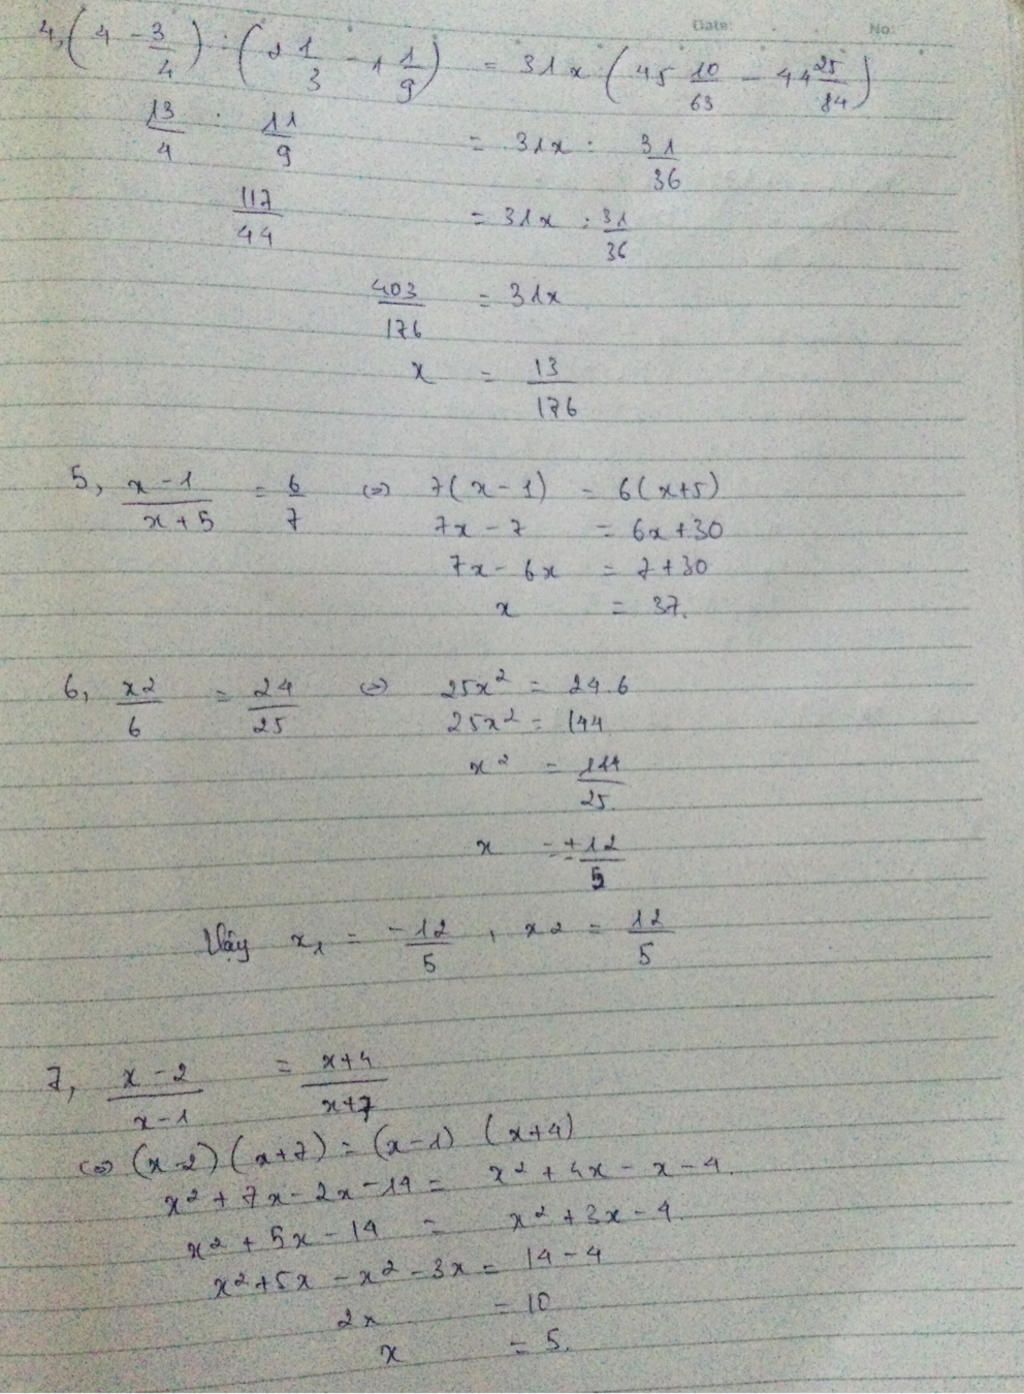 Date: No:
4, (4 - 3/4) : (2 1/3 - 1 1/9) = 31x (45 10/63 - 44 25/84)
13/4 : 11/9 = 31x : 31/36
117/44 = 31x : 31/36
403/176 = 31x
x = 13/176
5, x-1/x+5 = 6/7 (=) 7(x-1) = 6(x+5)
7x - 7 = 6x+30
7x - 6x = 7+30
x = 37.
6, x2/6 = 24/25 (=) 25x² = 24.6
25x² = 144
x² = 144/25.
x = ±12/5
Vậy x₁ = -12/5 , x2 = 12/5
7, x-2/x-1 = x+4/x+7
(=) (x-2)(x+7) = (x-1) (x+4)
x² + 7x - 2x - 14 = x² + 4x - x - 4.
x² + 5x - 14 = x² + 3x - 4.
x² + 5x - x² - 3x = 14 - 4
2x = 10
x = 5.